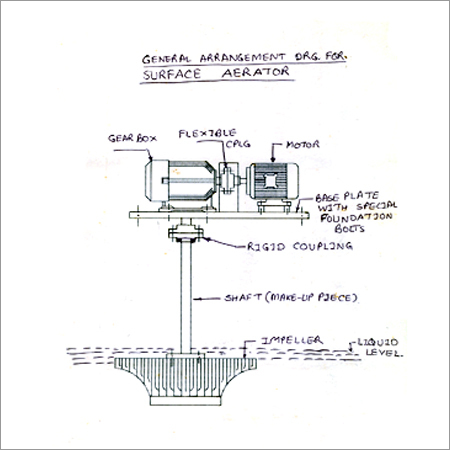 GENERAL ARRANGEMENT DRG. FOR.
SURFACE AERATOR
GEARBOX
FLEXIBLE
CPLG
MOTOR
BASE PLATE
WITH SPECIAL
FOUNDATION
BOLTS
RIGID COUPLING
SHAFT (MAKE-UP PIECE)
IMPELLER
LIQUID
LEVEL.